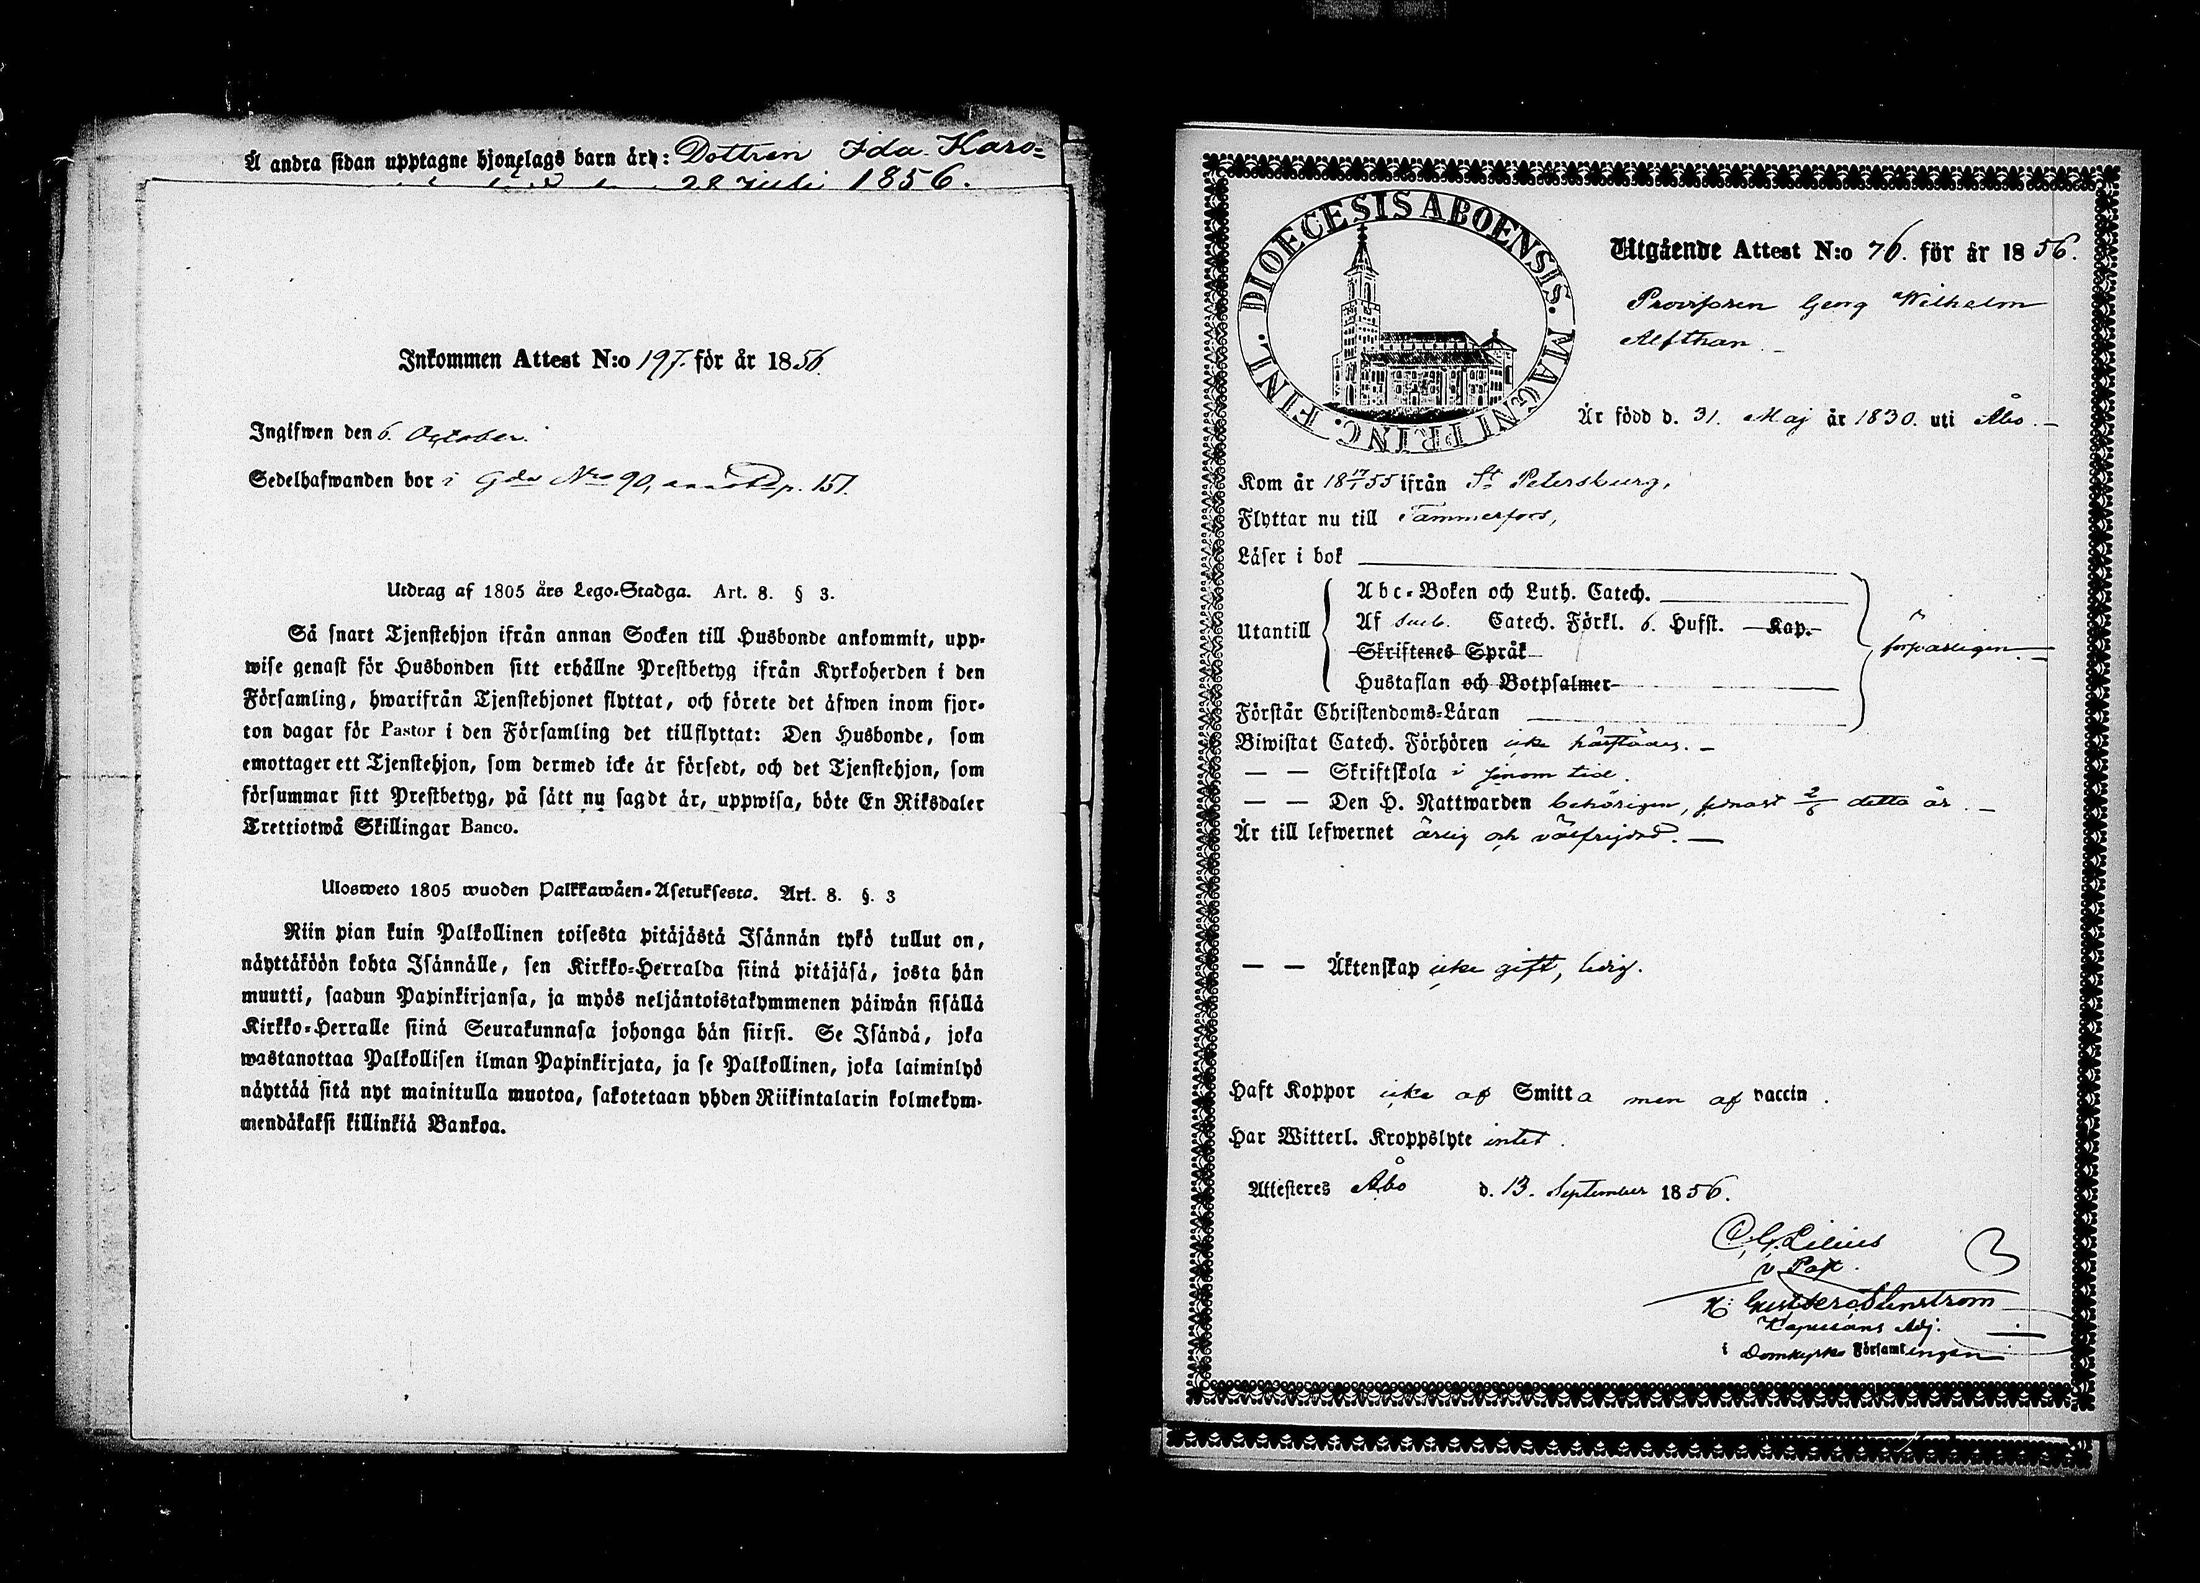 Å andra sidan upptagne hjonelags barn äro: Dottren Ida Karo=
28 juli 1856.
Inkommen Attest N:o 197. för år 1856.
Ingifwen den 6. October.
Sedelhafwanden bor i Gdn Nro 90, p. 151.
Utdrag af 1805 års Lego-Stadga. Art. 8. § 3.
Så snart Tjenstehjon ifrån annan Socken till Husbonde ankommit, upp-
wise genast för Husbonden sitt erhållne Prestbetyg ifrån Kyrkoherden i den
Församling, hwarifrån Tjenstehjonet flyttat, och förete det äfwen inom fjor-
ton dagar för Pastor i den Församling det tillflyttat: Den Husbonde, som
emottager ett Tjenstehjon, som dermed icke är försedt, och det Tjenstehjon, som
försummar sitt Prestbetyg, på sätt nu sagdt är, uppwisa, böte En Riksdaler
Trettiotwå Skillingar Banco.
Ulosweto 1805 wuoden Palkkawäen-Asetuksesta. Art. 8. §. 3
Niin pian kuin Palkollinen toisesta pitäjästä Isännän tykö tullut on,
näyttäköön kohta Isännälle, sen Kirkko-Herralda siinä pitäjäsä, josta hän
muutti, saadun Papinkirjansa, ja myös neljäntoistakymmenen päiwän sisällä
Kirkko-Herralle siinä Seurakunnasa johonga hän siirsi. Se Isändä, joka
wastanottaa Palkollisen ilman Papinkirjata, ja se Palkollinen, joka laiminlyö
näyttää sitä nyt mainitulla muotoa, sakotetaan yhden Riikintalarin kolmekym-
mendäkaksi killinkiä Bankoa.
DIOECESIS ABOENSIS. MAGNI PRINC. FINL.
Utgående Attest N:o 76. för år 1856.
Provisoren Georg Wilhelm
Alfthan.
Är född d. 31. Maj år 1830. uti Åbo.
Kom år 18 17/1 55 ifrån St Petersburg,
Flyttar nu till Tammerfors,
Läser i bok
Utantill
Abc-Boken och Luth. Catech.
Af Sveb. Catech. Förkl. 6. Hufst. Kap.
Skriftenes Språk
Hustaflan och Botpsalmer
försvarligen.
Förstår Christendoms-Läran
Biwistat Catech. Förhören icke härstädes.
— — Skriftskola i sinom tid.
— — Den H. Nattwarden behörigen, senast 2/6 detta år.
Är till lefwernet ärlig och välfrejdad.
— — Äktenskap icke gift, ledig.
Haft Koppor icke af Smitta men af vaccin.
Har Witterl. Kroppslyte intet.
Attesteres Åbo d. 13. September 1856.
C. G. Lilius
v. Past.
Stenström
Kapellans Adj.
i Domkyrko Församlingen